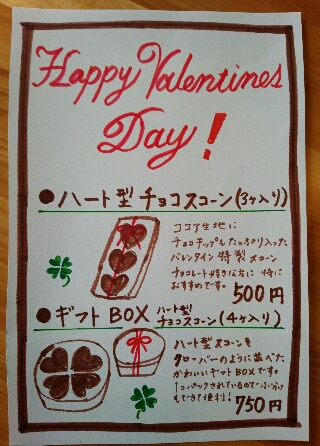 Happy Valentines
Day!
●ハート型チョコスコーン(3ヶ入り)
ココア生地に
チョコチップもたっぷり入った
バレンタイン特製スコーン
チョコレート好きな方に特に
おすすめです。 500円
●ギフトBOX ハート型
チョコスコーン(4ヶ入り)
ハート型スコーンを
クローバーのように並べた
かわいいギフトBOXです。
1コパックされているので小分け
もできて便利! 750円